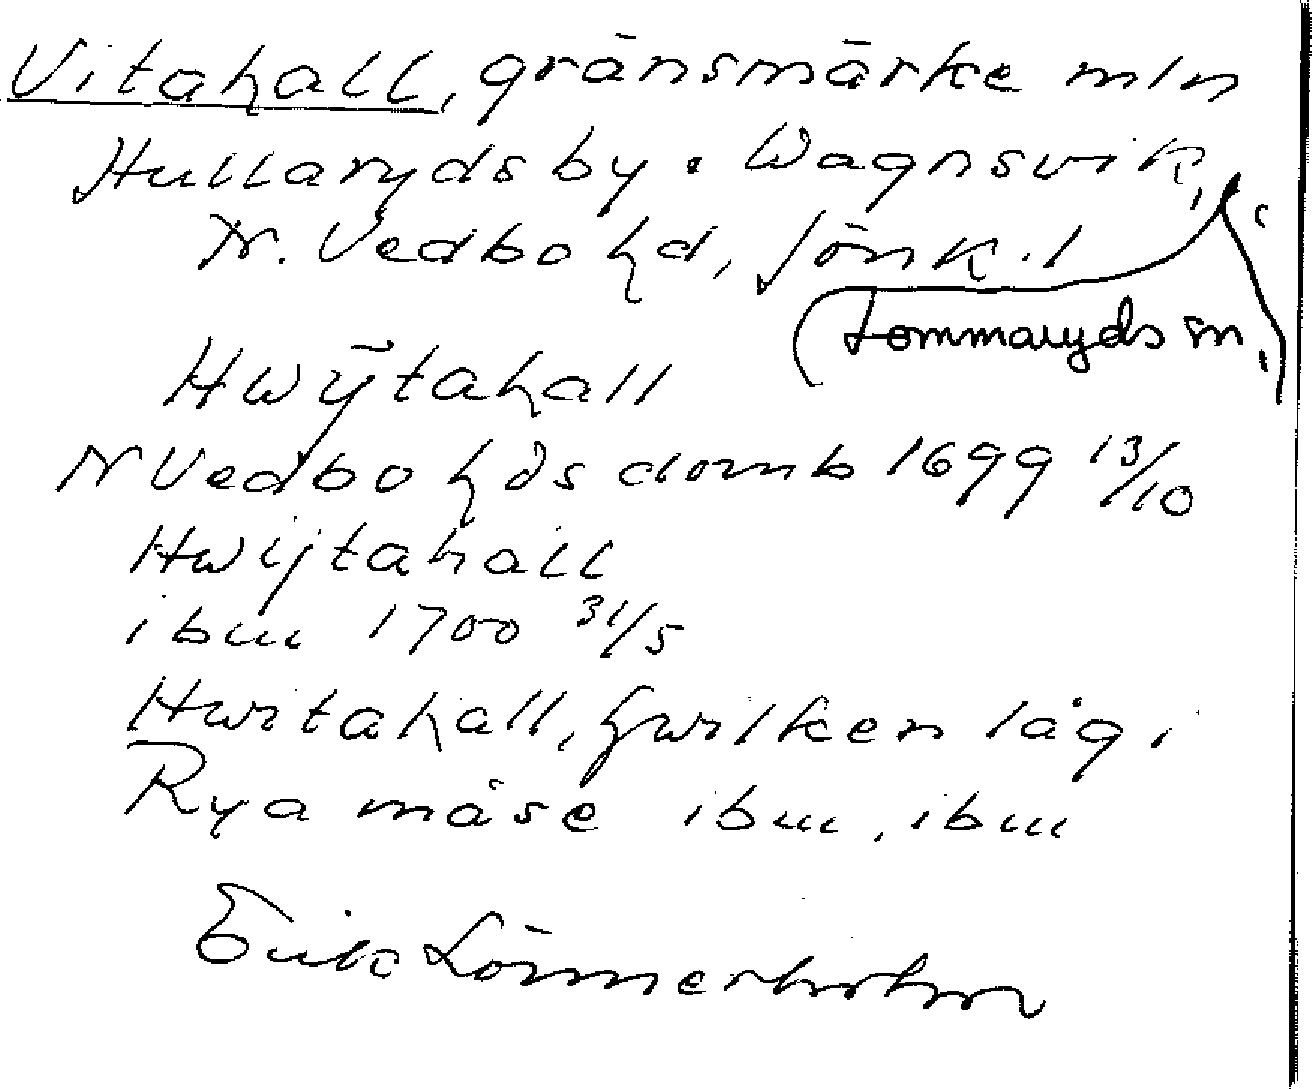 Vitahall, gränsmärke mln
Hullaryds by o. Wagnsvik, i
N. Vedbo hd, Jönk. l
(Lommaryds sn,)
Hwÿtahall
N Vedbo hds domb 1699 13/10
Hwijtahall
ibm 1700 31/5
Hwitahall, hwilken låg i
Rya måse ibm, ibm
Erik Lönnerholm